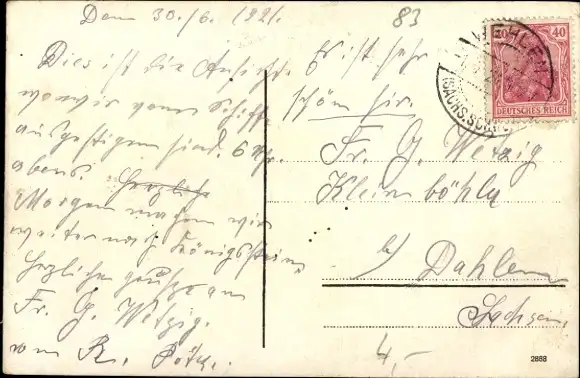 Den 30./6. 1921.
83
Dies ist die Ansicht
wo wir vom Schiffe
ausgestigen sind. 6 Uhr
abens. Herzliche
Morgen machen wir
weiter nach Königstein,
Herzliche grüsse an
Fr. G. Wetzig.
von R.
Es ist sehr
schön hir.
Fr. G. Wetzig
Kleinböhla
b/ Dahlen
Sachsen
4,-
2888
WEHLEN
(SÄCHS. SCHW
40 40
DEUTSCHES REICH